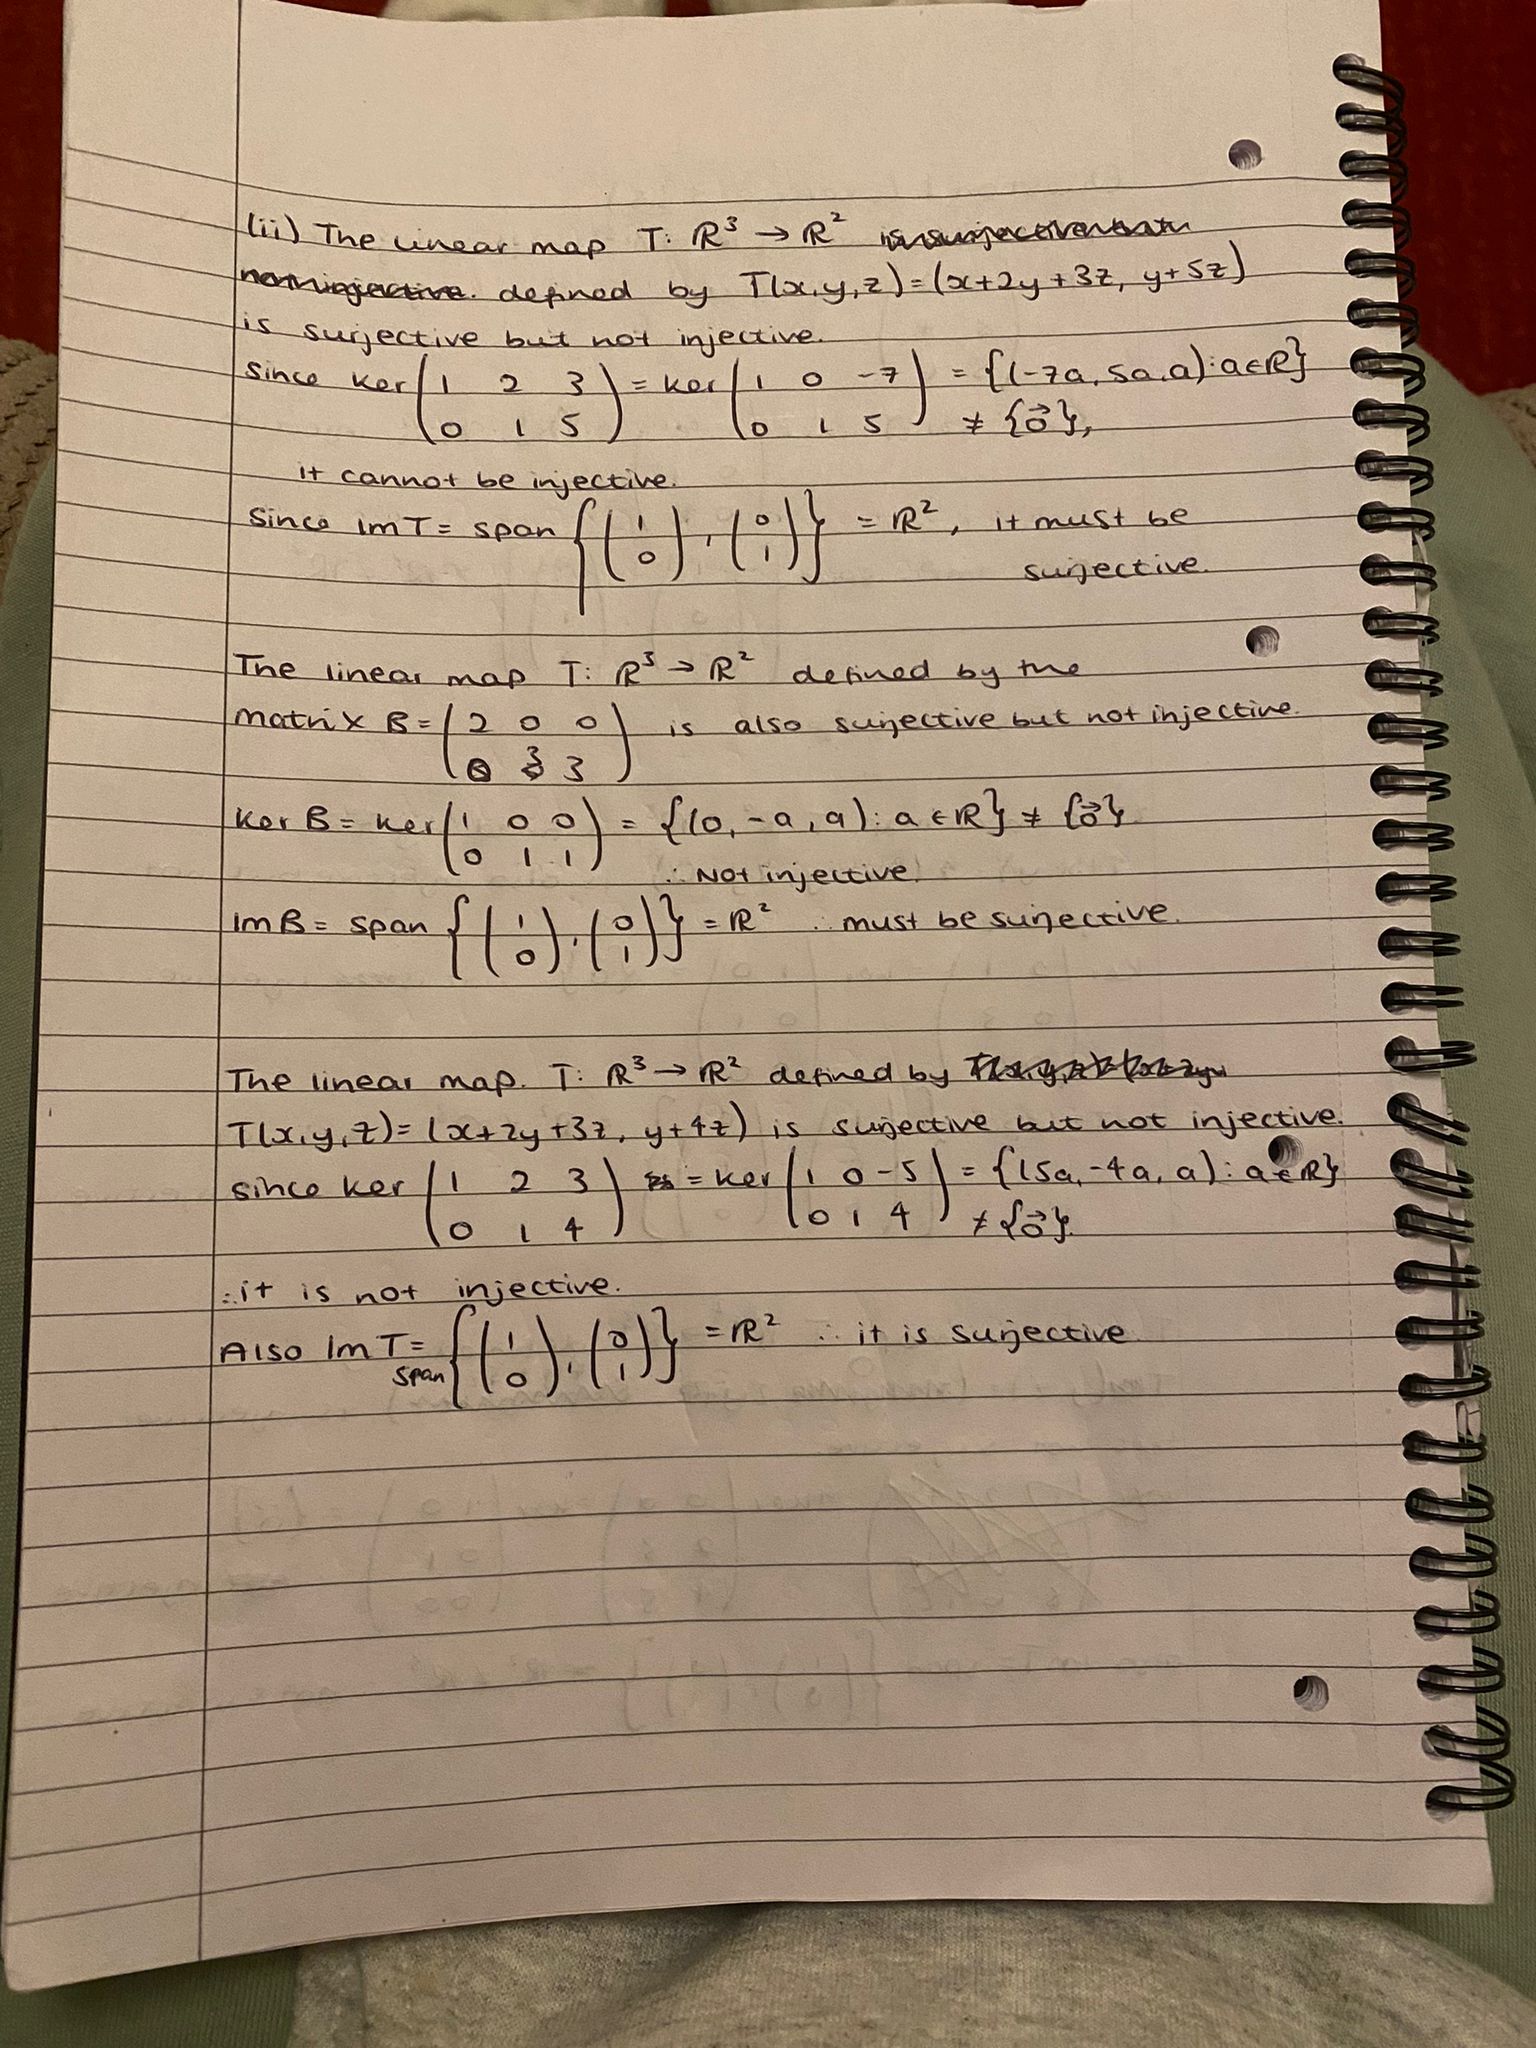 (ii) The linear map T: ℝ³ → ℝ²
defined by T(x,y,z)=(x+2y+3z, y+5z)
is surjective but not injective.
since ker (1 2 3) = ker (1 0 -7) = {(-7a, 5a, a): a∈ℝ}
(0 1 5) (0 1 5) ≠ {0⃗},
it cannot be injective.
Since Im T = span {(1 0), (0 1)} = ℝ², it must be
surjective.
The linear map T: ℝ³ → ℝ² defined by the
matrix B = (2 0 0) is also surjective but not injective.
(0 3 3)
Ker B = ker (1 0 0) = {(0, -a, a): a ∈ ℝ} ≠ {0⃗}
(0 1 1)
∴ Not injective.
Im B = span {(1 0), (0 1)} = ℝ² ∴ must be surjective.
The linear map. T: ℝ³ → ℝ² defined by
T(x,y,z) = (x+2y+3z, y+4z) is surjective but not injective.
since ker (1 2 3) = ker (1 0 -5) = {(5a, -4a, a): a ∈ ℝ}
(0 1 4) (0 1 4) ≠ {0⃗}.
∴ it is not injective.
Also Im T = span {(1 0), (0 1)} = ℝ² ∴ it is surjective